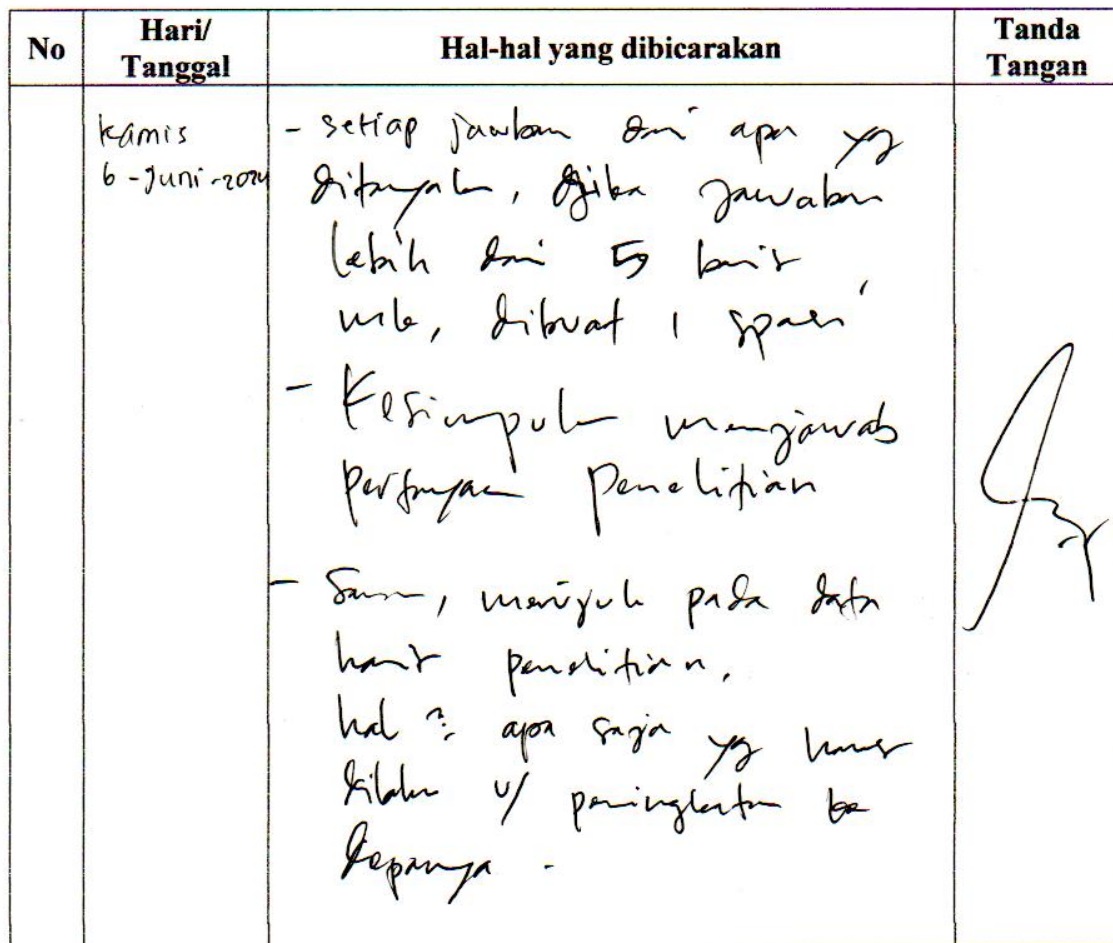 No
Hari/
Tanggal
Hal-hal yang dibicarakan
Tanda
Tangan
Kamis
6-Juni-2024
- setiap jawaban dari apa yg
ditanyakan, jika jawaban
lebih dari 5 baris
mk, dibuat 1 spasi
- Kesimpulan menjawab
pertanyaan penelitian
- Saran, merujuk pada data
hasil penelitian,
hal² apa saja yg harus
dilakukan u/ peningkatan ke
depannya.